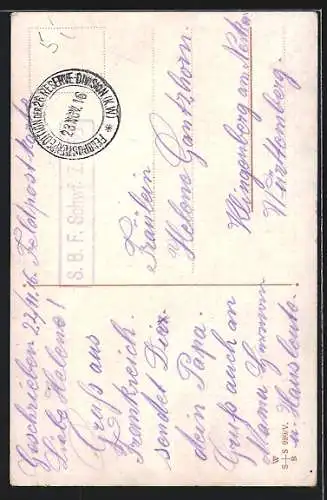 5
FELDPOSTEXPEDITION DER 26. RESERVE-DIVISION (K.W.)
28. NOV. 16
S. B. F. Schw.
Feldpostkarte
Fräulein
Helene Gantzhorn
Klingenberg am Neckar
Württemberg.
Geschrieben 27/11.16.
Liebe Helene!
Gruß aus
Frankreich
sendet Dir
dein Papa.
Gruß auch an
Mama Hermann
u. Hausleute.
W
S+S 989/V.
B